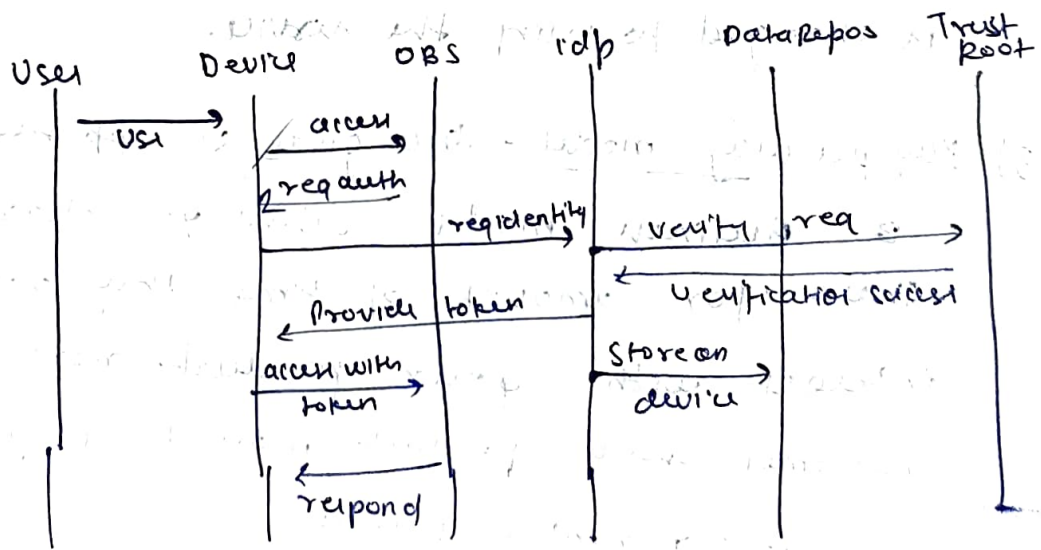 User
Device
OBS
idp
DataRepos
Trust
Root
use
access
req auth
reqidentity
verify req
verification success
Provide token
access with
token
Store on
device
respond